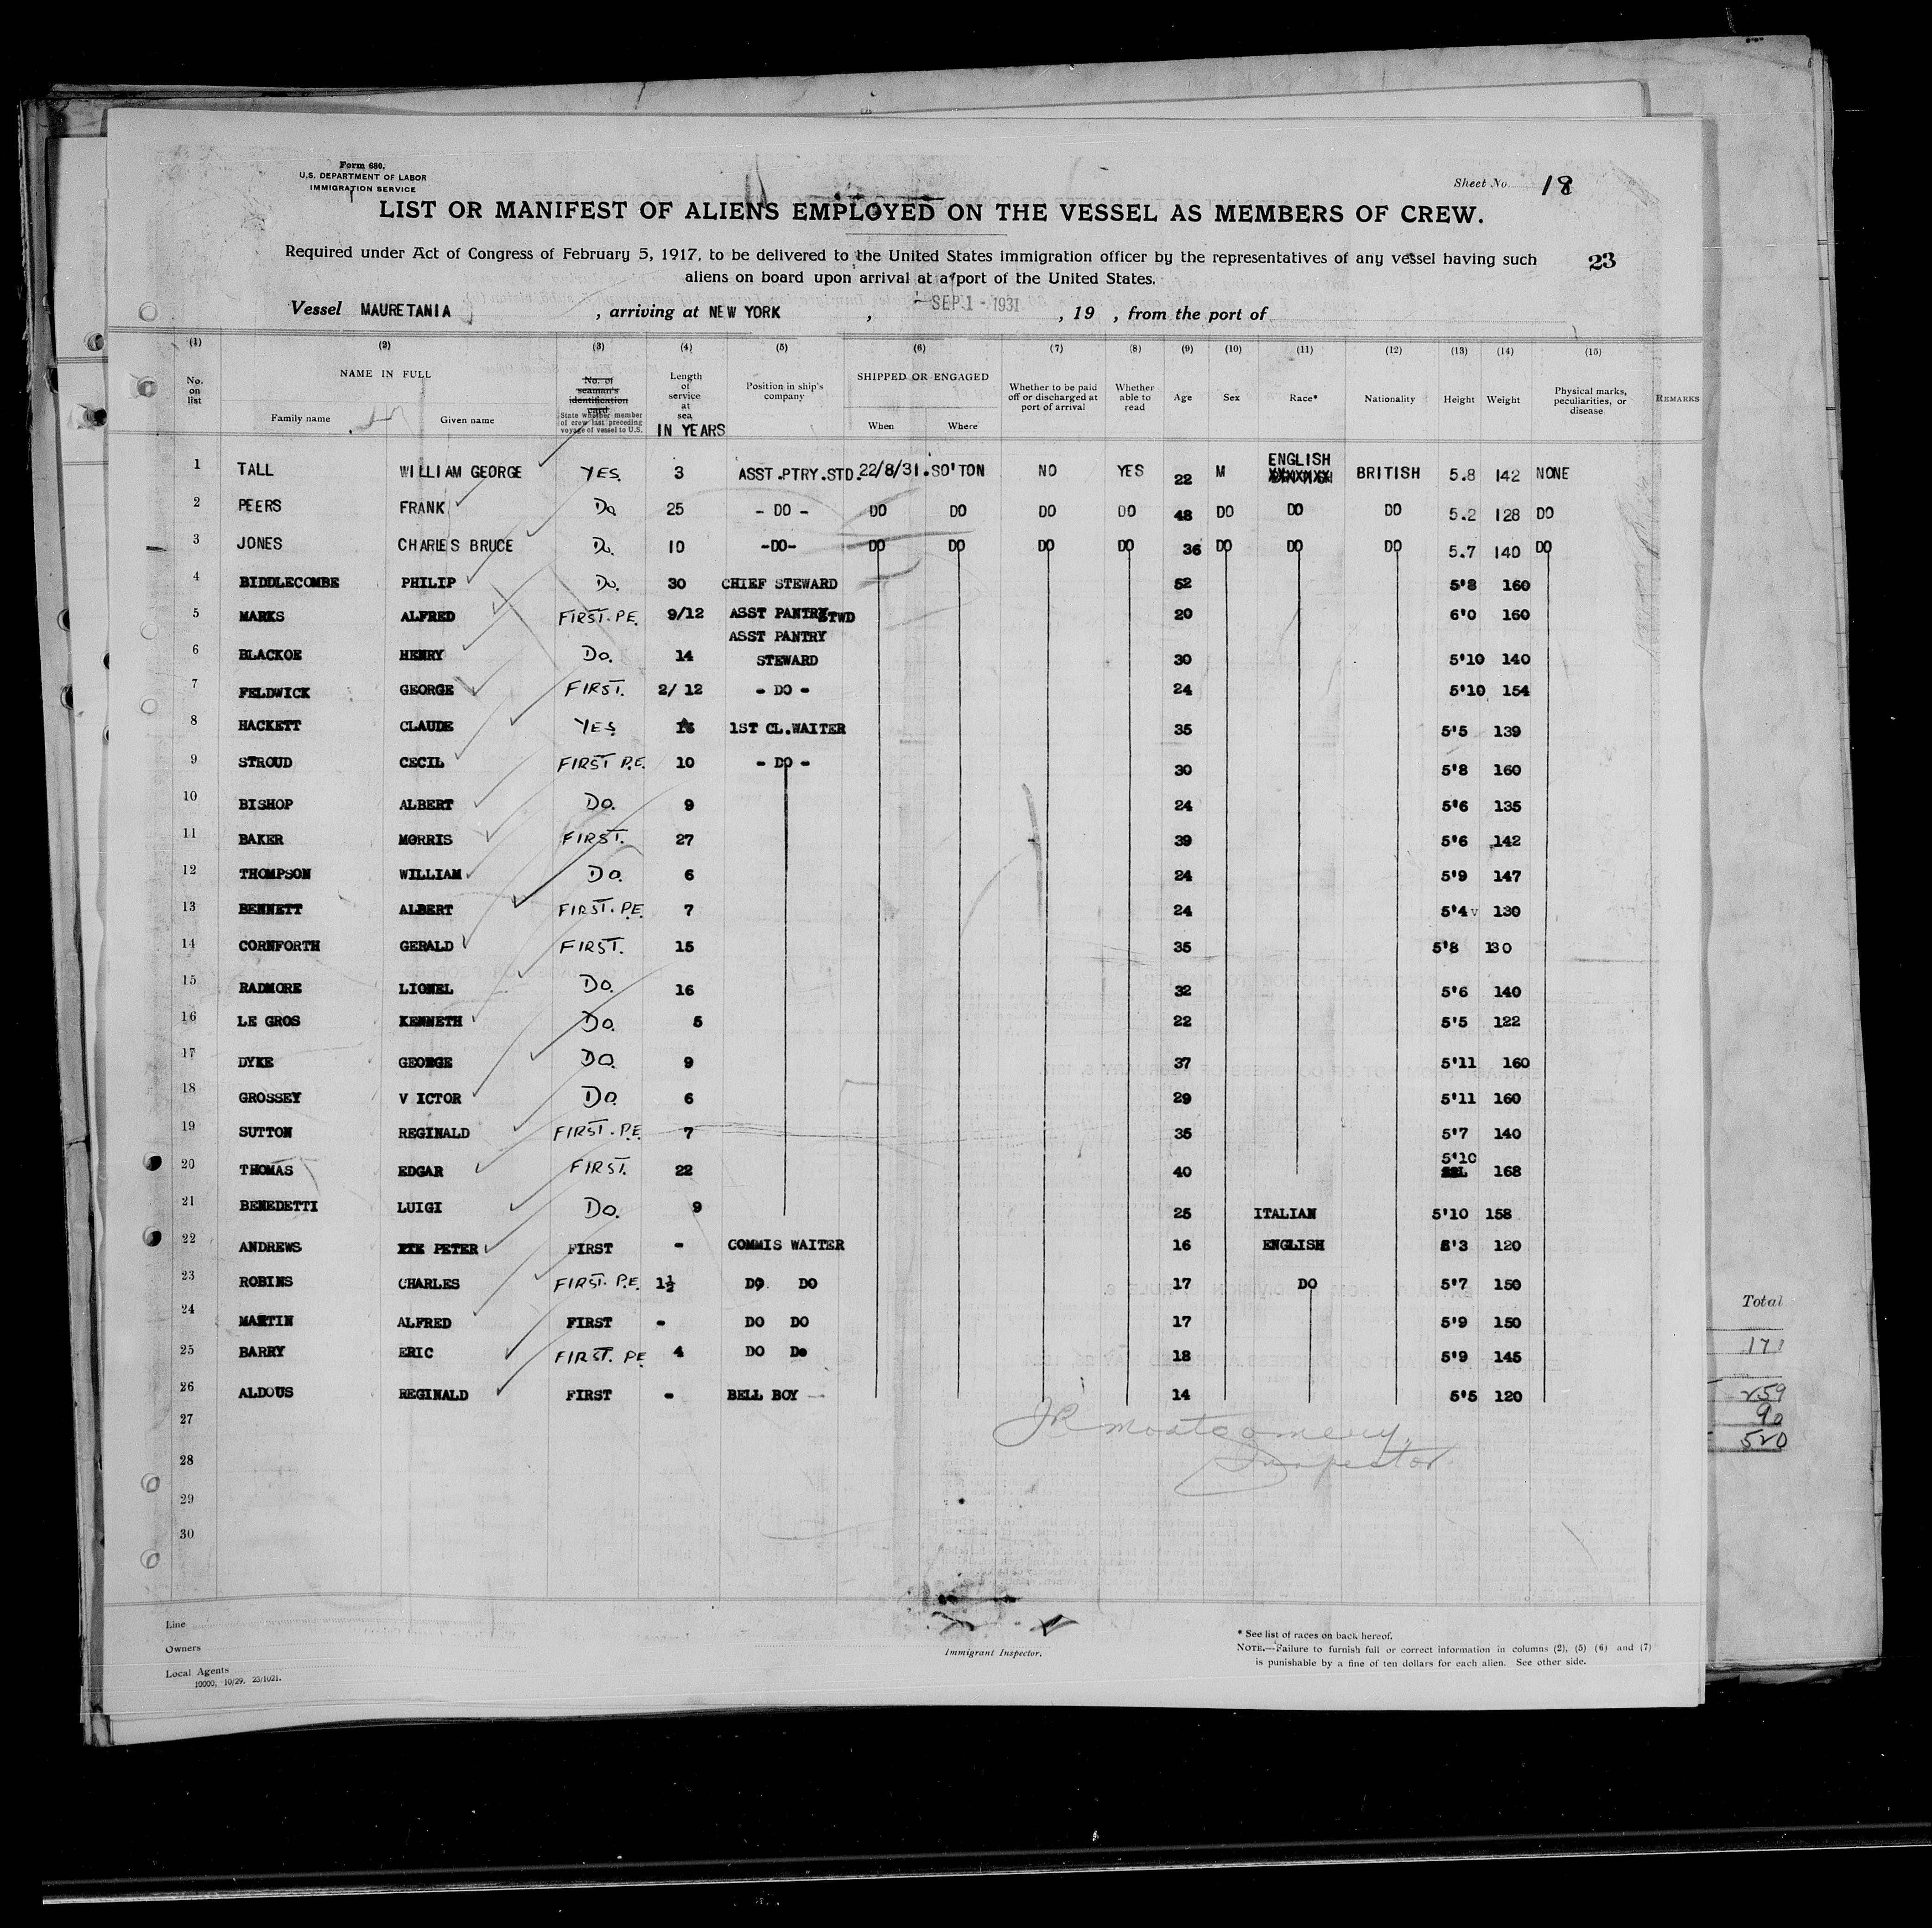 Form 680.
U.S. DEPARTMENT OF LABOR
IMMIGRATION SERVICE
Sheet No. 18
LIST OR MANIFEST OF ALIENS EMPLOYED ON THE VESSEL AS MEMBERS OF CREW.
Required under Act of Congress of February 5, 1917, to be delivered to the United States immigration officer by the representatives of any vessel having such
aliens on board upon arrival at a port of the United States.
23
Vessel MAURETANIA, arriving at NEW YORK, SEP 1 - 1931, 19 , from the port of
(1) (2) (3) (4) (5) (6) (7) (8) (9) (10) (11) (12) (13) (14) (15)
No. on list
NAME IN FULL
Family name Given name
No. of seaman's identification card
State whether member of crew last preceding voyage of vessel to U.S.
Length of service at sea
IN YEARS
Position in ship's company
SHIPPED OR ENGAGED
When Where
Whether to be paid off or discharged at port of arrival
Whether able to read
Age
Sex
Race*
Nationality
Height
Weight
Physical marks, peculiarities, or disease
REMARKS
1 TALL WILLIAM GEORGE YES. 3 ASST.PTRY.STD. 22/8/31. SO'TON NO YES 22 M ENGLISH BRITISH 5.8 142 NONE
2 PEERS FRANK Do 25 - DO - DO DO DO DO 48 DO DO DO 5.2 128 DO
3 JONES CHARLES BRUCE Do. 10 -DO- DO DO DO DO 36 DO DO DO 5.7 140 DO
4 BIDDLECOMBE PHILIP Do. 30 CHIEF STEWARD 52 5'8 160
5 MARKS ALFRED FIRST. P.E. 9/12 ASST PANTRY STWD 20 6'0 160
6 BLACKOE HENRY Do. 14 ASST PANTRY STEWARD 30 5'10 140
7 FELDWICK GEORGE FIRST. 2/ 12 - DO - 24 5'10 154
8 HACKETT CLAUDE YES 1ST CL.WAITER 35 5'5 139
9 STROUD CECIL FIRST P.E. 10 - DO - 30 5'8 160
10 BISHOP ALBERT Do. 9 24 5'6 135
11 BAKER MORRIS FIRST. 27 39 5'6 142
12 THOMPSON WILLIAM Do. 6 24 5'9 147
13 BENNETT ALBERT FIRST. P.E. 7 24 5'4 130
14 CORNFORTH GERALD FIRST. 15 35 5'8 130
15 RADMORE LIONEL Do. 16 32 5'6 140
16 LE GROS KENNETH Do. 5 22 5'5 122
17 DYKE GEORGE Do. 9 37 5'11 160
18 GROSSEY V ICTOR Do. 6 29 5'11 160
19 SUTTON REGINALD FIRST. P.E. 7 35 5'7 140
20 THOMAS EDGAR FIRST. 22 40 5'10 168
21 BENEDETTI LUIGI Do. 9 25 ITALIAN 5'10 158
22 ANDREWS PETER FIRST - COMMIS WAITER 16 ENGLISH 5'3 120
23 ROBINS CHARLES FIRST. P.E. 1½ DO. DO 17 DO 5'7 150
24 MARTIN ALFRED FIRST - DO DO 17 5'9 150
25 BARRY ERIC FIRST. PE 4 DO Do 18 5'9 145
26 ALDOUS REGINALD FIRST - BELL BOY 14 5'5 120
27
28
29
30
JR Montgomery
Inspector
Total
171
259
90
520
Line
Owners
Local Agents
10000. 10/29. 23/1021.
Immigrant Inspector.
* See list of races on back hereof.
NOTE.—Failure to furnish full or correct information in columns (2), (5) (6) and (7)
is punishable by a fine of ten dollars for each alien. See other side.